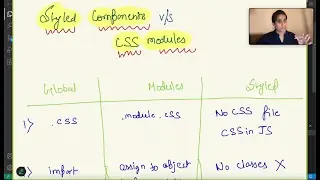 Styled Components v/s
CSS modules
Global Modules Styled
1) .css .module.css No CSS file
CSS in JS
2) import assign to object No classes X